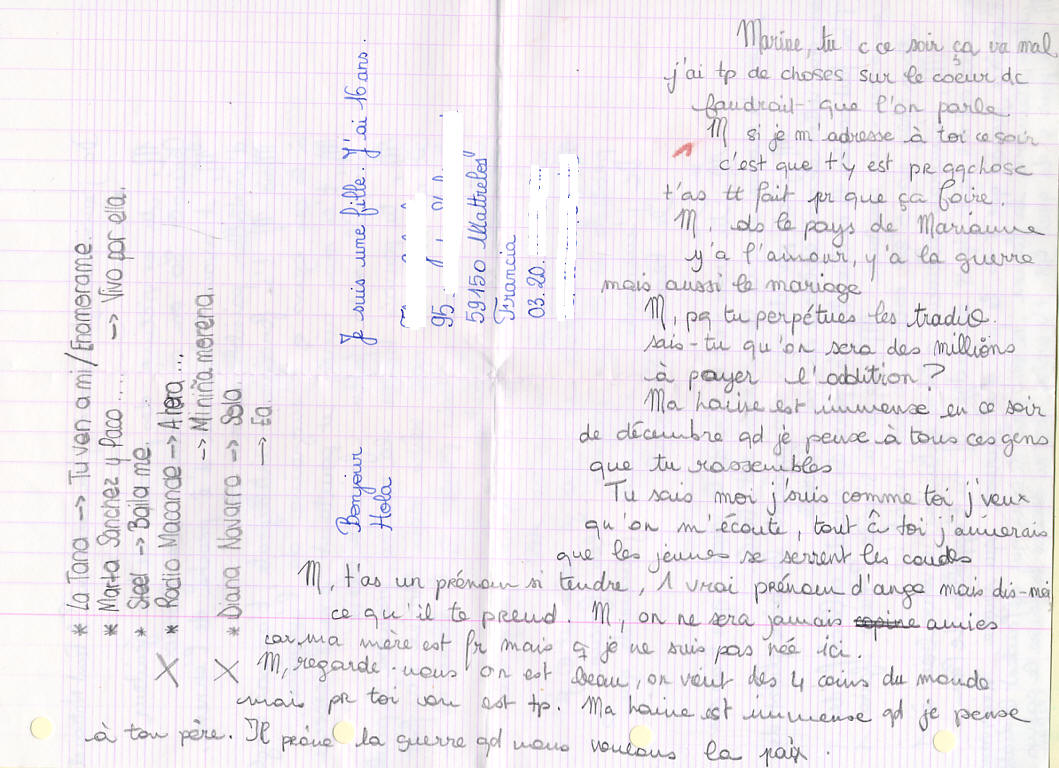 Marine, tu c ce soir ça va mal
j'ai tp de choses sur le coeur dc
faudrait que l'on parle
M si je m'adresse à toi ce soir
c'est que t'y est pr qqchose
t'as tt fait pr que ça foire.
M, ds le pays de Marianne
y'a l'amour, y'a la guerre
mais aussi le mariage
M, pq tu perpétues les tradio.
sais-tu qu'on sera des millions
à payer l'addition ?
Ma haine est immense en ce soir
de décembre qd je pense à tous ces gens
que tu rassembles
Tu sais moi j'suis comme toi j'veux
qu'on m'écoute, tout â toi j'aimerais
que les jeunes se serrent les coudes
M, t'as un prénom si tendre, 1 vrai prénom d'ange mais dis-moi
ce qu'il te prend. M, on ne sera jamais amies
car ma mère est fr mais q je ne suis pas née ici.
M, regarde-nous on est beau, on vient des 4 coins du monde
mais pr toi on est tp. Ma haine est immense qd je pense
à ton père. Il prône la guerre qd nous voulons la paix.
Bonjour Je suis une fille. J'ai 16 ans.
Hola
95
59150 Wattrelos"
Francia
03.20.
* La Tana --> Tu ven a mi / Enamorame.
* Marta Sanchez y Paco .... --> Vivo por ella.
* Steel --> Baila me.
* Radio Macande --> Atera ...
--> Mi niña morena.
* Diana Navarro --> Sola
--> Ea.